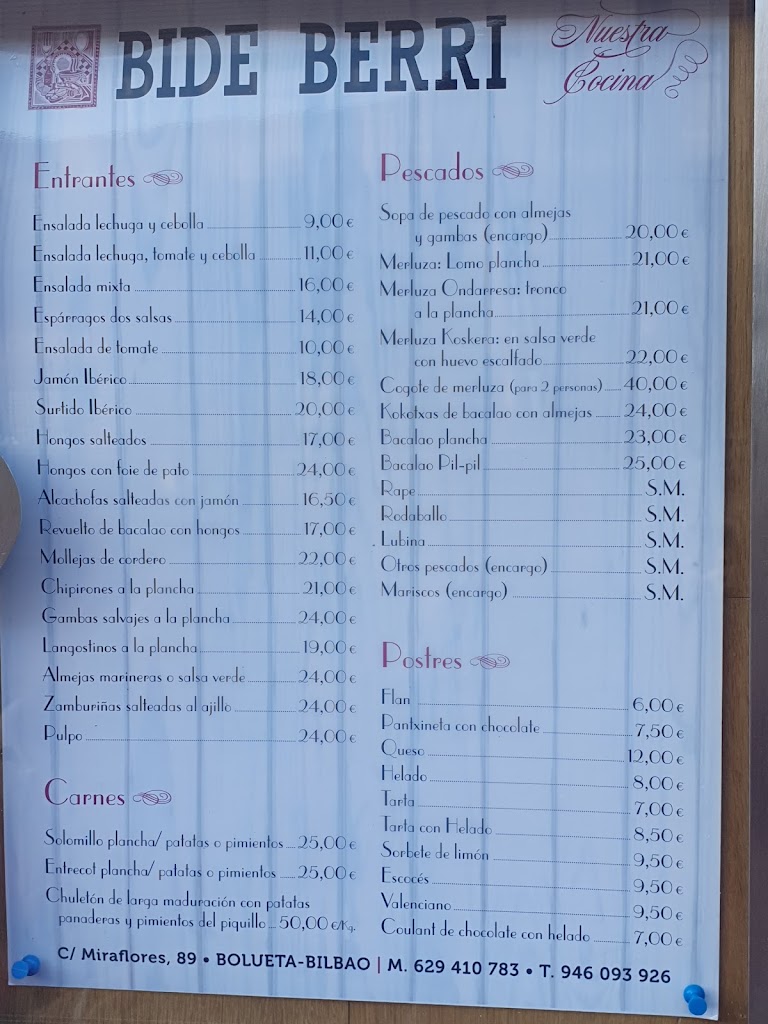 BIDE BERRI
Nuestra
Cocina
Entrantes
Ensalada lechuga y cebolla 9,00 €
Ensalada lechuga, tomate y cebolla 11,00 €
Ensalada mixta 16,00 €
Espárragos dos salsas 14,00 €
Ensalada de tomate 10,00 €
Jamón Ibérico 18,00 €
Surtido Ibérico 20,00 €
Hongos salteados 17,00 €
Hongos con foie de pato 24,00 €
Alcachofas salteadas con jamón 16,50 €
Revuelto de bacalao con hongos 17,00 €
Mollejas de cordero 22,00 €
Chipirones a la plancha 21,00 €
Gambas salvajes a la plancha 24,00 €
Langostinos a la plancha 19,00 €
Almejas marineras o salsa verde 24,00 €
Zamburiñas salteadas al ajillo 24,00 €
Pulpo 24,00 €
Carnes
Solomillo plancha/ patatas o pimientos 25,00 €
Entrecot plancha/ patatas o pimientos 25,00 €
Chuletón de larga maduración con patatas
panaderas y pimientos del piquillo 50,00 €/Kg.
Pescados
Sopa de pescado con almejas
y gambas (encargo) 20,00 €
Merluza: Lomo plancha 21,00 €
Merluza Ondarresa: tronco
a la plancha 21,00 €
Merluza Koskera: en salsa verde
con huevo escalfado 22,00 €
Cogote de merluza (para 2 personas) 40,00 €
Kokotxas de bacalao con almejas 24,00 €
Bacalao plancha 23,00 €
Bacalao Pil-pil 25,00 €
Rape S.M.
Rodaballo S.M.
Lubina S.M.
Otros pescados (encargo) S.M.
Mariscos (encargo) S.M.
Postres
Flan 6,00 €
Pantxineta con chocolate 7,50 €
Queso 12,00 €
Helado 8,00 €
Tarta 7,00 €
Tarta con Helado 8,50 €
Sorbete de limón 9,50 €
Escocés 9,50 €
Valenciano 9,50 €
Coulant de chocolate con helado 7,00 €
C/ Miraflores, 89 • BOLUETA-BILBAO | M. 629 410 783 • T. 946 093 926